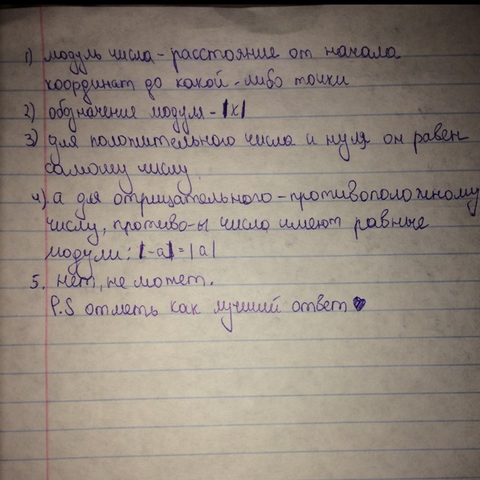 1) модуль числа - расстояние от начала
координат до какой-либо точки
2) обозначение модул - |x|
3) для положительного числа и нуля он равен
самому числу.
4) а для отрицательного - противоположному
числу, противо-ы число имеют равные
модули: |-a|=|a|
5. нет, не может.
P.S отметь как лучший ответ